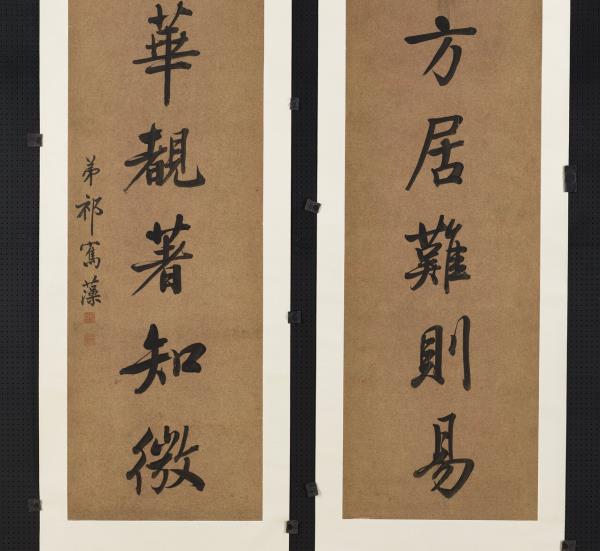 方居難則易
華覩著知微
弟祁寯藻